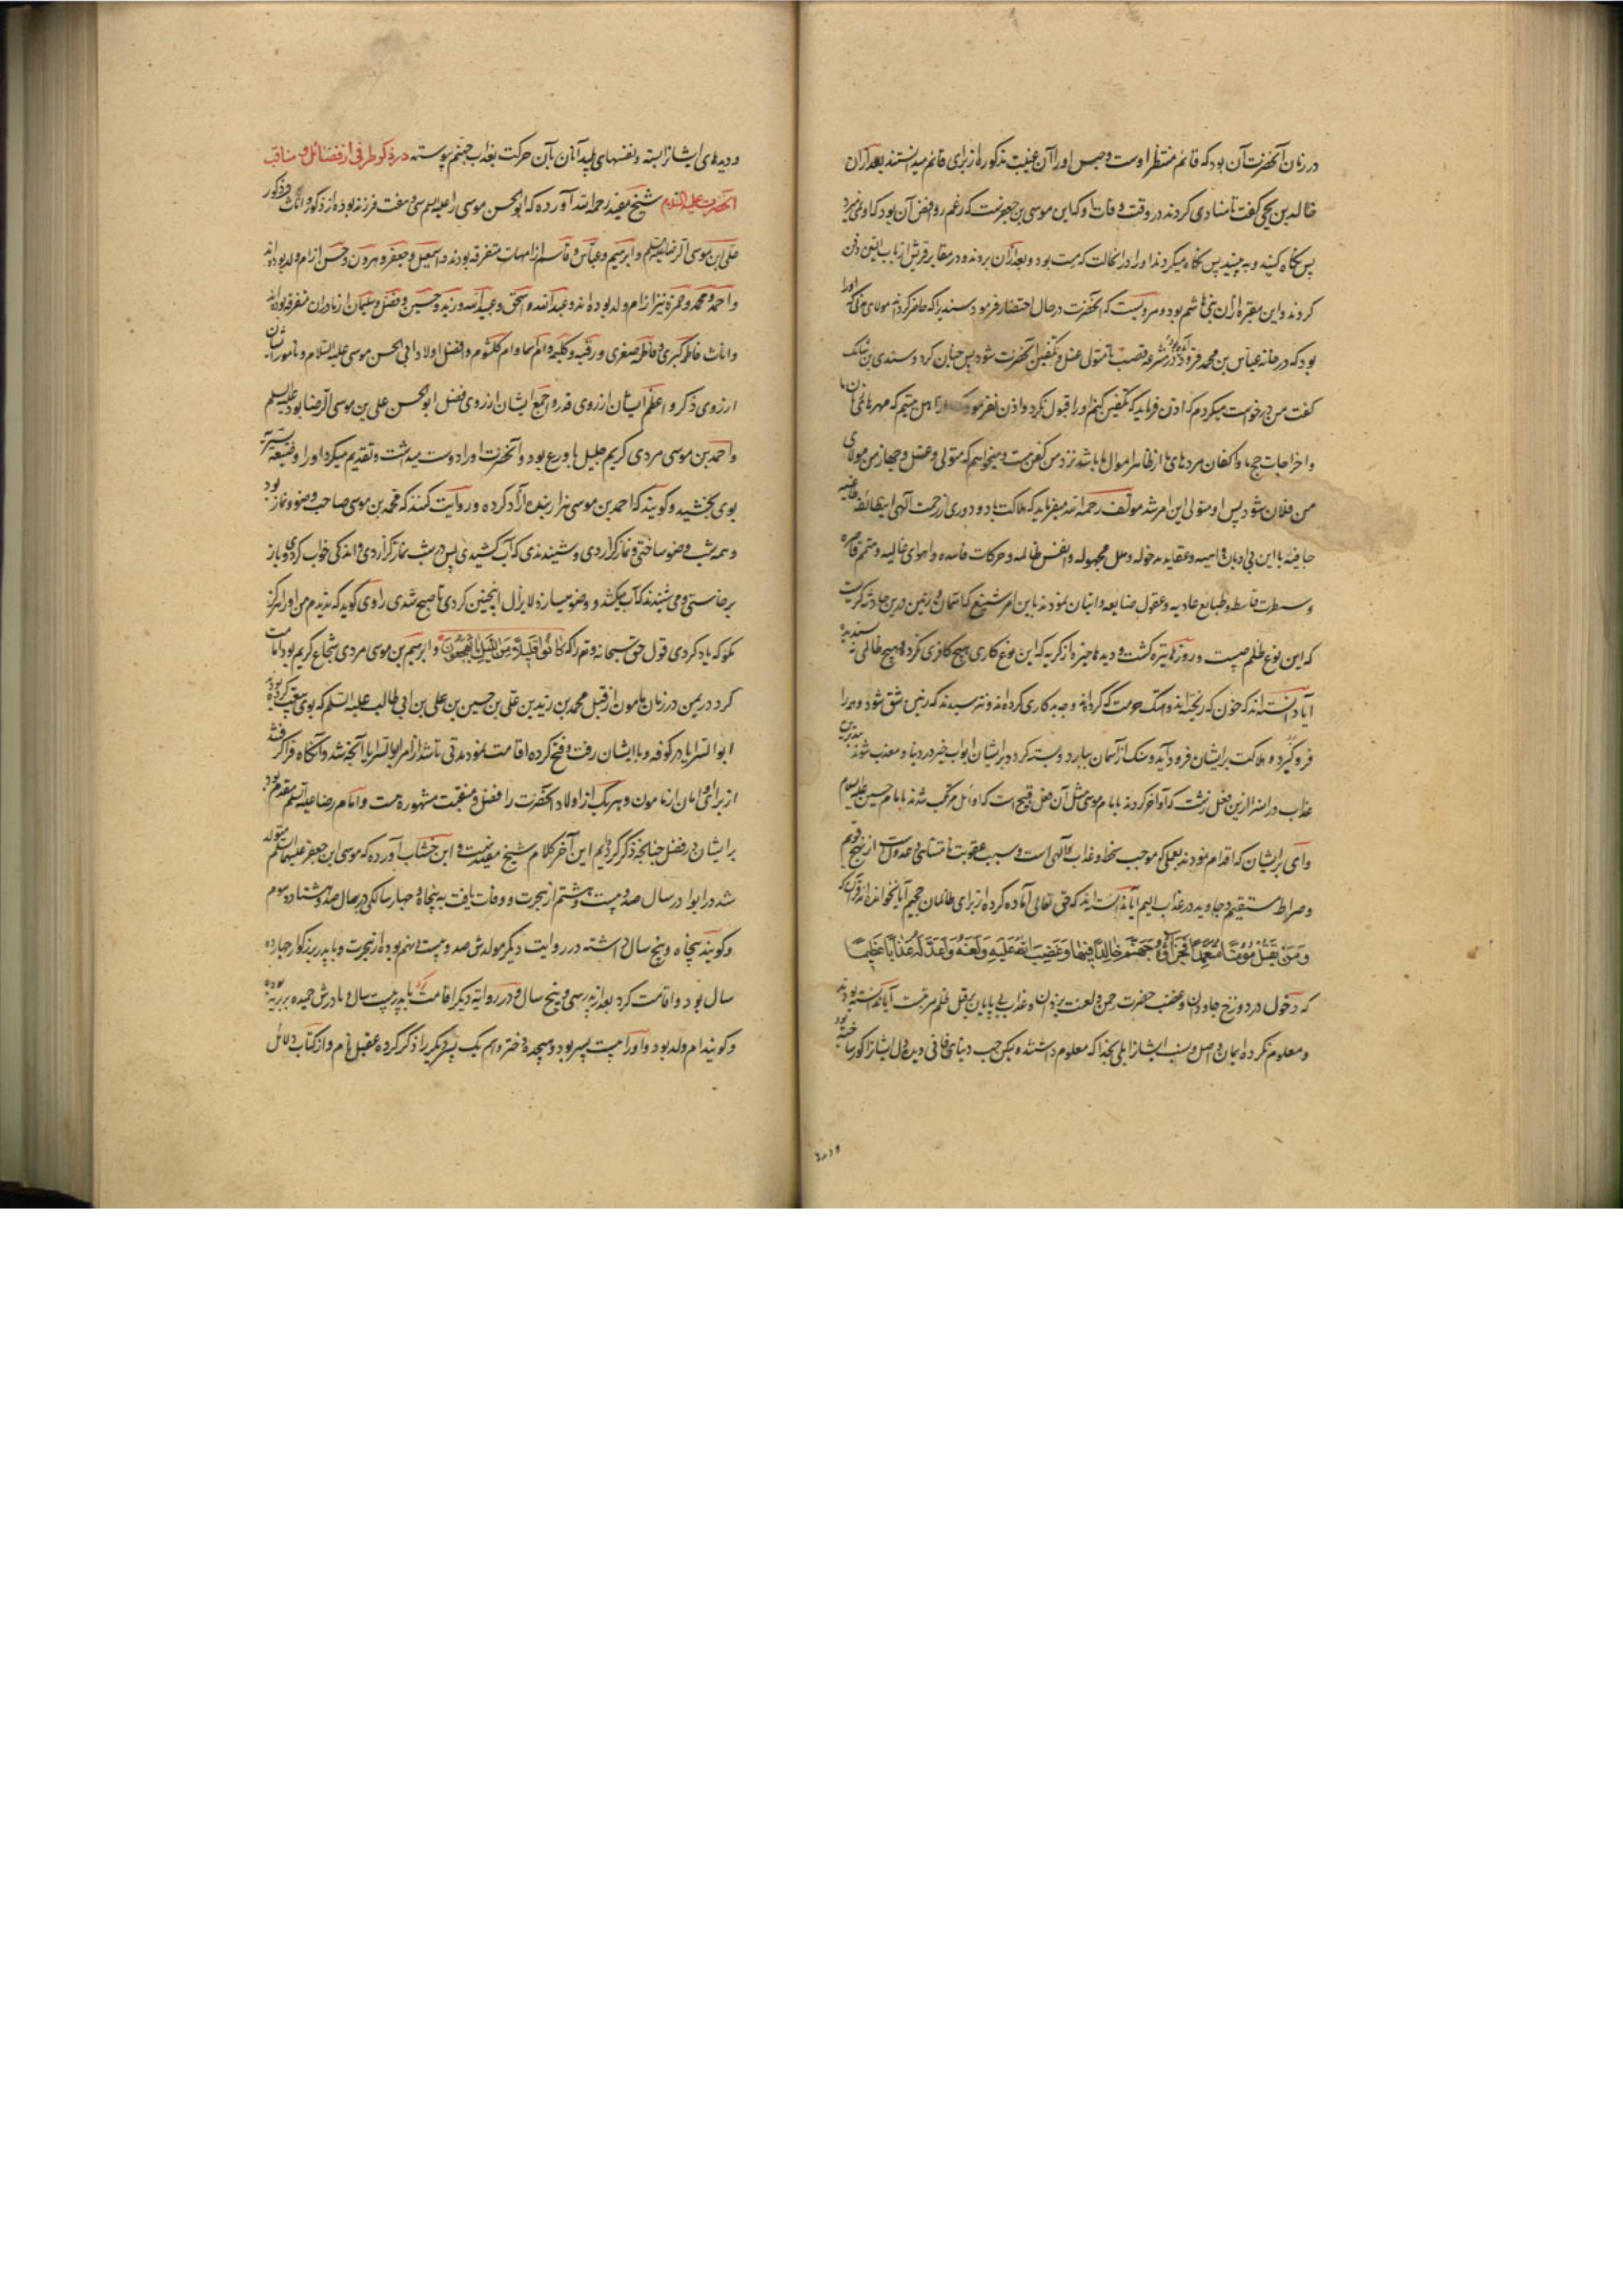 در زمان آنحضرت آن بود که قائم منتظر اوست و حبس او را آن غیبت مذکوره از برای قائم میدانستند بعد از آن
خالد بن یحیی گفت تا منادی کردند در وقت وفات او که این موسی بن جعفرست که زعم روافض آن بود که او نمی میرد
پس نگاه کنید و به بینید پس نگاه میکردند او را در آن حالت که میت بود و بعد از آن بردند و در مقابر قریش از باب التین دفن
کردند و این مقبره از آن بنی هاشم بود و مرویست که آنحضرت در حال احتضار فرمود سندی را که حاضر کردند مولای مدنی که او را
بود که در خانه عباس بن محمد فرود آمده بود در مشرعه قصب تا متولی غسل و تکفین آنحضرت شود پس چنان کرد و سندی بن شاهک
گفت من درخواست میکردم که اذن فرماید که تکفین کنم او را قبول نکرد و اذن نفرمود که ما اهل بیتیم که مهر های زنان ما
و اخراجات حج ما و اکفان مردهای ما از طاهر اموال ما باشد نزد من کفن هست و میخواهم که متولی غسل و جهاز من مولای
من فلان شود پس او متولی این امر شد مولف رحمه الله میفرماید که هلاکت باد و دوری از رحمت الهی این طائفه طاغیه
جافیه با این بی ادیان و عقاید مدخوله و ملل مجهوله و انفس ظالمه و حرکات فاسده و اهوای غالیه و همم قاصره
و سطوت قاسطه و طبایع عادیه و عقول ضایعه و اتیان نمودند باین امر شنیع که آسمان و زمین درین حادثه گریست
که این نوع ظلم چیست و روزها تیره گشت و دیدها خیره از گریه که این نوع کاری هیچ کافری نکرد و هیچ ظالمی نه پسندیده
آیا دانسته اند که خون که ریخته اند و هتک حرمت که کرده اند و چه بد کاری کرده اند و نترسیدند که زمین شق شود و همه را
فرو گیرد و هلاکت بر ایشان فرود آید و سنگ از آسمان ببارد و بسته گردد بر ایشان ابواب خیر در دنیا و معذب شوند بدترین
عذاب در آخرت ازین فعل زشت که آواخر کردند با امام موسی مثل آن فعل قبیح است که اوائل مرتکب شدند با امام حسین علیه السلام
وای بر ایشان که اقدام نمودند بعملی که موجب سخط و عذاب الهی است و سبب عقوبت نامتناهی و عدول است از نهج قویم
و صراط مستقیم و جاوید در عذاب الیم آیا ندانسته اند که حق تعالی آماده کرده از برای ظالمان جحیم آیا نخوانده اند از قرآن که
وَمَنْ يَقْتُلْ مُؤْمِنًا مُتَعَمِّدًا فَجَزَآؤُهُ جَهَنَّمُ خَالِدًا فِيهَا وَغَضِبَ اللهُ عَلَيْهِ وَلَعَنَهُ وَأَعَدَّ لَهُ عَذَابًا عَظِيمًا
که دخول در دوزخ جاودان و غضب حضرت رحمن و لعنت یزدان و عذاب بی پایان بر قتل ظلم مرتبست آیا ندانسته بودند
و معلوم نکرده ایمان و اصل و نسب ایشان را بلی بخدا که معلوم داشتند و لیکن حب دنیای فانی دیده دل ایشان را کور ساخته بود
و دیدهای ایشان را بسته و نفسهای پلید آنان بآن حرکت بعذاب جهنم پیوسته در ذکر طرفی از فضائل و مناقب
آنحضرت علیه السلام شیخ مفید رحمه الله آورده که ابو الحسن موسی را علیه السلم سی و هفت فرزند بوده از ذکور و اناث و ذکور
علی ابن موسی الرضا علیه السلم و ابرهیم و عباس و قاسم از امهات متفرقه بودند و اسمعیل و جعفر و هرون و حسن از ام ولد بوده اند
و احمد و محمد و حمزه نیز از ام ولد بوده اند و عبد الله و اسحق و عبید الله و زید و حسین و فضل و سلیمان از مادران متفرقه بوده اند
و اناث فاطمه کبری و فاطمه صغری و رقیه و کلیمه و ام اسما و ام کلثوم و افضل اولاد ابی الحسن موسی علیه السلام و نامورترشان
از روی ذکر و اعظم ایشان از روی قدر و اجمع ایشان از روی فضل ابو الحسن علی بن موسی الرضا بود علیه السلم
و احمد بن موسی مردی کریم جلیل با ورع بود و آنحضرت او را دوست میداشت و تقدیم میکرد او را و ضیعه یسیره
بوی بخشید و گویند که احمد بن موسی هزار بنده آزاد کرده و روایت کنند که محمد بن موسی صاحب وضو و نماز بود
و همه شب وضو ساختی و نماز گزاردی و شنیدندی که آب کشیدی پس در شب نماز گزاردی و اندکی خواب کردی و باز
برخاستی و می شنیدند که آب میکشد و وضو میسازد لا یزال اینچنین کردی تا صبح شدی راوی گوید که ندیدم من او را هرگز
مگر که یاد کردی قول حق سبحانه و تعالی را که كَانُوا قَلِيلًا مِنَ اللَّيْلِ مَا يَهْجَعُونَ و ابرهیم بن موسی مردی شجاع کریم بود امامت
کرد در یمن در زمان مامون از قبل محمد بن زید بن علی بن حسین بن علی بن ابی طالب علیه السلم که بوی بیعت کرده بود
ابو السرایا در کوفه و با ایشان رفت و فتح کرده اقامت نمود مدتی تا شد از امر ابو السرایا آنچه شد و آنگاه فرا گرفتند
از برای او امان از مامون و هر یک از اولاد آنحضرت را فضل و منقبت مشهوره هست و امام رضا علیه السلم مقدم بود
بر ایشان در فضل چنانچه ذکر کردیم این آخر کلام شیخ مفیدست و ابن خشاب آورده که موسی ابن جعفر علیهما السلم متولد
شد در ابوا در سال صد و بیست و هشتم از هجرت و وفات یافت به پنجاه و چهار سالگی در سال صد و هشتاد و سوم
و گویند پنجاه و پنج سال داشته در روایت دیگر مولدش صد و بیست و نهم بوده از هجرت و با پدر بزرگوار چهارده
سال بود و اقامت کرد بعد از پدر سی و پنج سال و در روایة دیگر اقامت کرد با پدر بیست سال و مادرش حمیده بربریه بوده
و گویند ام ولد بود و او را بیست پسر بود و هیجده دختر و هم یک پسر دیگر را ذکر کرده عقیل نام و از کتاب دلائل